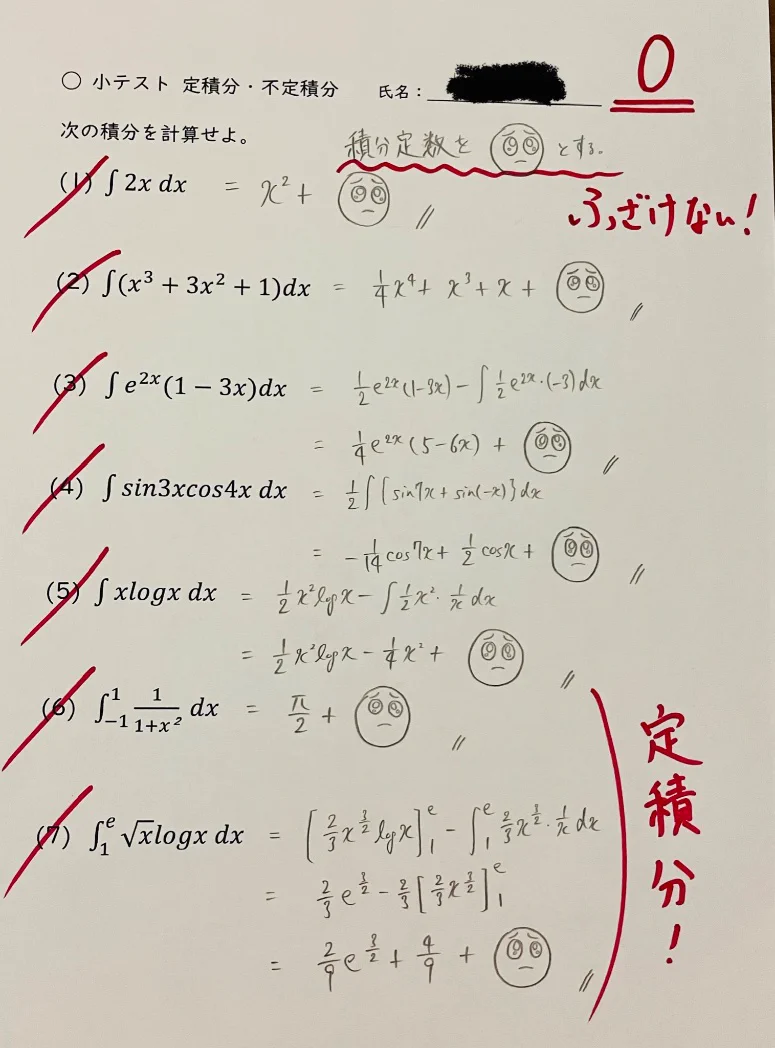 0
○ 小テスト 定積分・不定積分 氏名：
次の積分を計算せよ。
積分定数を🥺とする。
ふざけない！
(1) ∫ 2x dx = x² + 🥺 //
(2) ∫(x³ + 3x² + 1)dx = 1/4 x⁴ + x³ + x + 🥺 //
(3) ∫ e²ˣ(1 − 3x)dx = 1/2 e²ˣ(1-3x) − ∫ 1/2 e²ˣ·(-3)dx
= 1/4 e²ˣ(5−6x) + 🥺 //
(4) ∫ sin3xcos4x dx = 1/2 ∫{sin7x + sin(-x)}dx
= − 1/14 cos7x + 1/2 cosx + 🥺 //
(5) ∫ xlogx dx = 1/2 x²logx − ∫ 1/2 x²· 1/x dx
= 1/2 x²logx − 1/4 x² + 🥺 //
(6) ∫₋₁¹ 1/(1+x²) dx = π/2 + 🥺 //
(7) ∫₁ᵉ √xlogx dx = [2/3 x^(3/2) logx]₁ᵉ − ∫₁ᵉ 2/3 x^(3/2)· 1/x dx
= 2/3 e^(3/2) − 2/3 [2/3 x^(3/2)]₁ᵉ
= 2/9 e^(3/2) + 4/9 + 🥺 //
定積分！